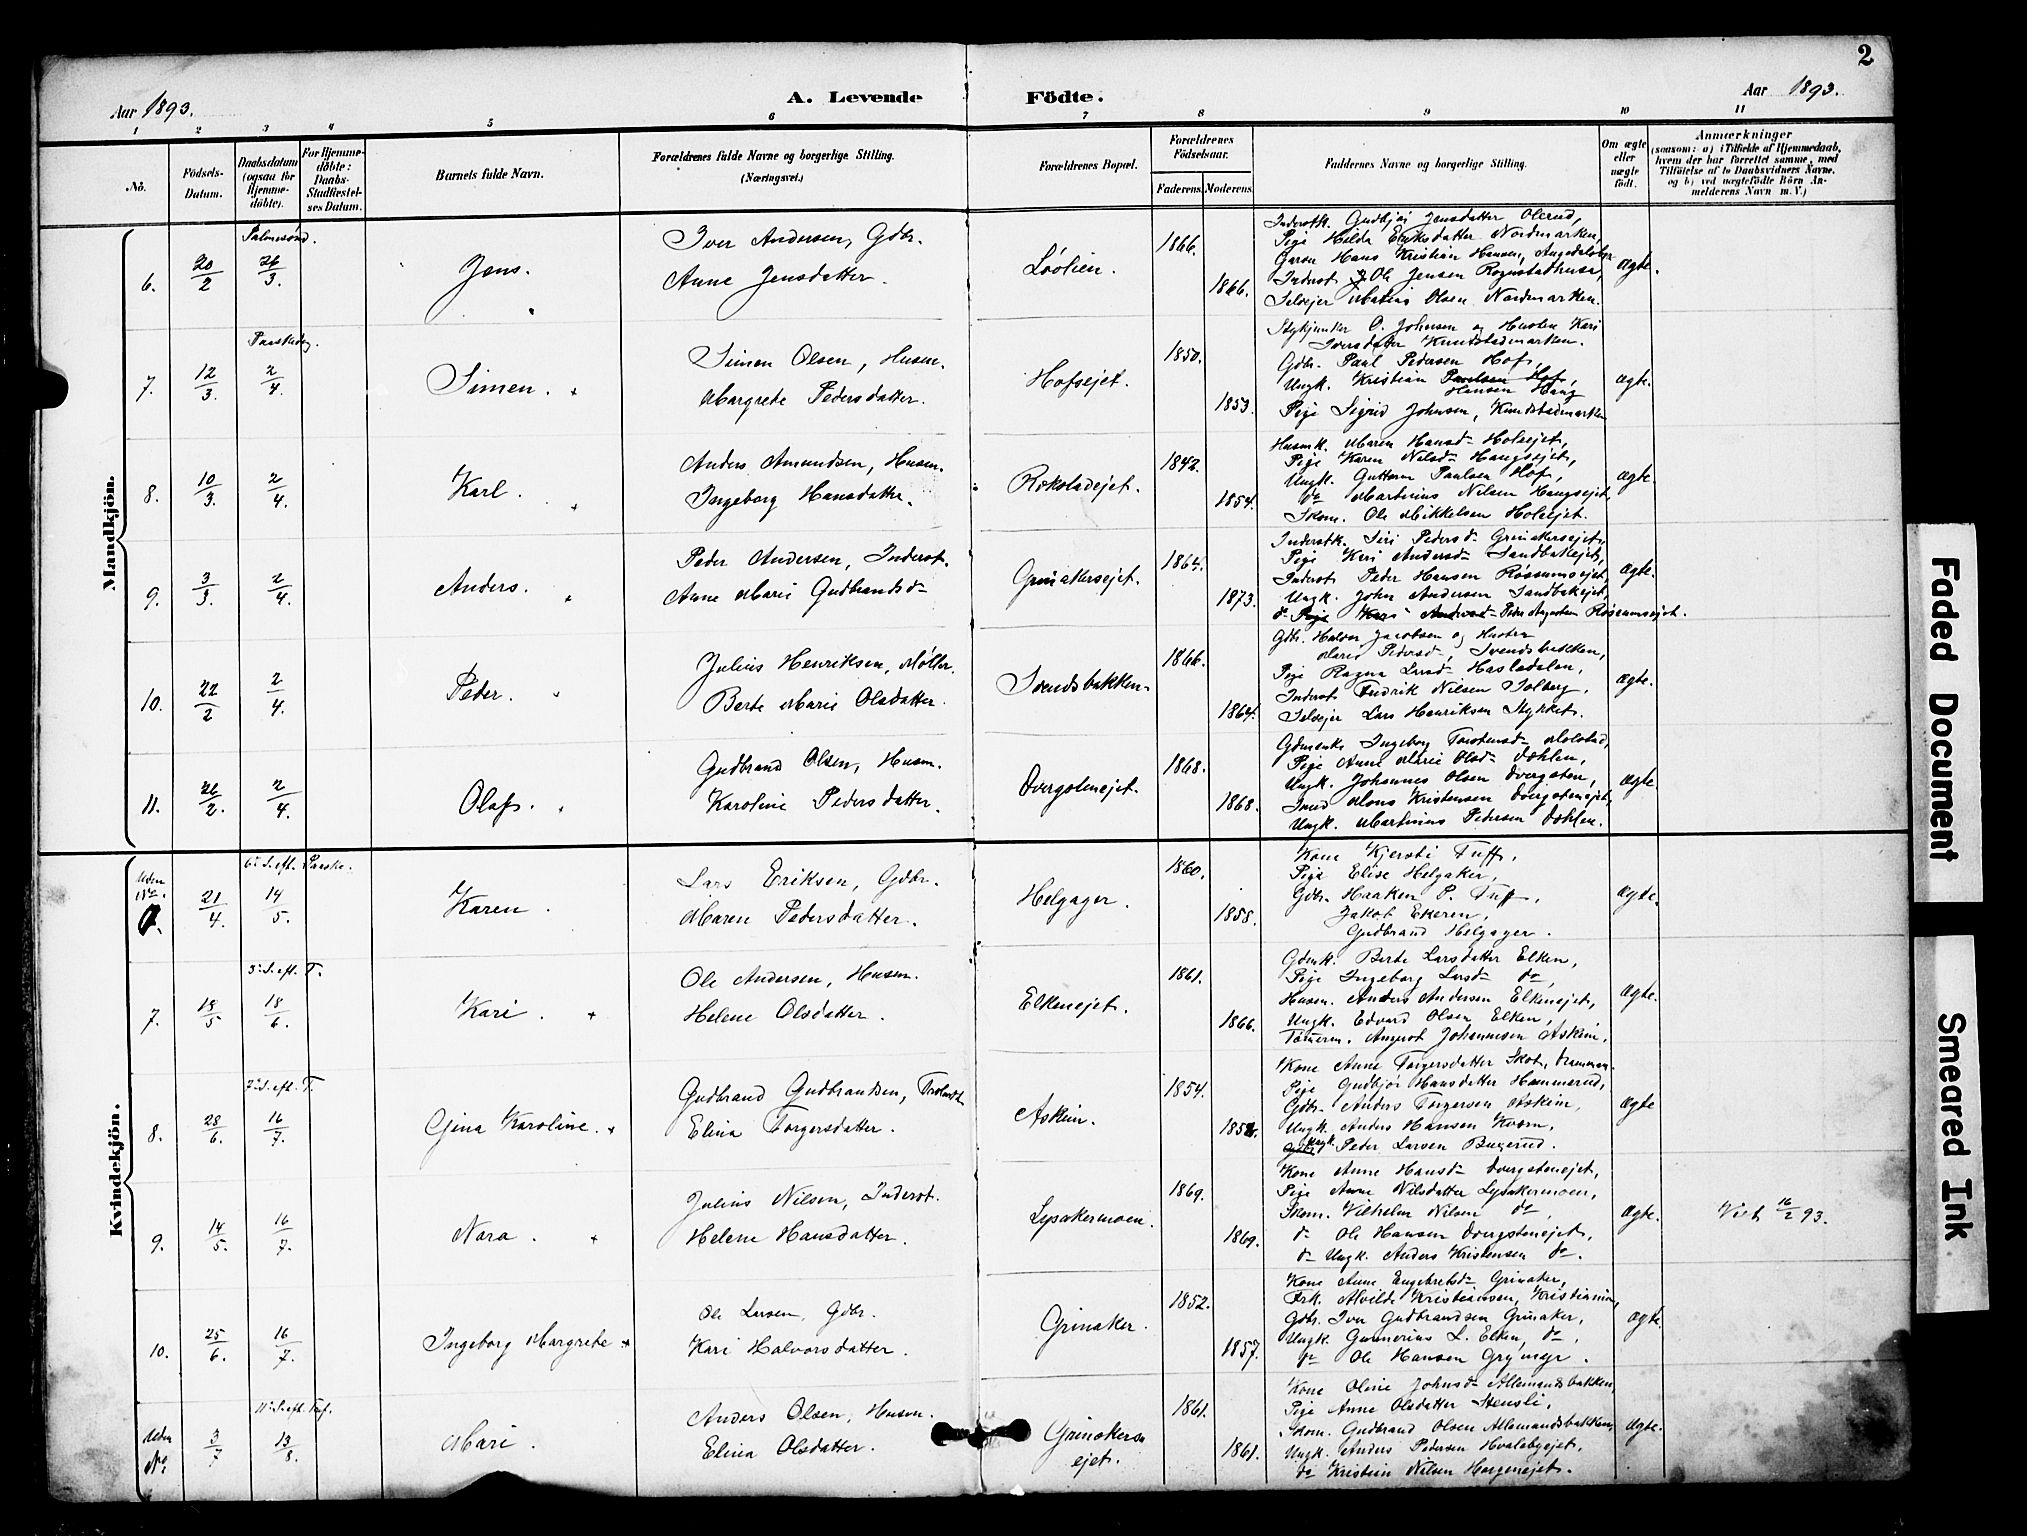 2
Aar 1893.
A. Levende Födte.
Aar 1893.
1 2 3 4 5 6 7 8 9 10 11
No.
Födsels-Datum.
Daabsdatum (ogsaa for Hjemme-döbte).
For Hjemme-döbte: Daabs-Stadfæstel-ses Datum.
Barnets fulde Navn.
Forældrenes fulde Navne og borgerlige Stilling.
(Næringsvei.)
Forældrenes Bopæl.
Forældrenes Födselsaar.
Faderens. Moderens.
Faddernes Navne og borgerlige Stilling.
Om ægte eller uægte födt.
Anmærkninger
(saasom: a) i Tilfælde af Hjemmedaab,
hvem der har forrettet samme, med
Tilföielse af to Daabsvidners Navne,
og b) ved uægtefödte Börn An-
melderens Navn m. V.)
Mandkjön.
6. 20/2 26/3 Jens.
Iver Andersen, Gdbr.
Anne Jensdatter.
Löölien. 1866. 1866.
Inderstk. Gudbjør Jensdatter Olerud,
Pige Hilda Eriksdatter Nordmarken,
Garver Hans Kristian Hansen,
Inderst Ole Jensen Rognstadhusa,
Selvejer Matias Olsen Nordmarken.
Ægte.
Paaskedag.
7. 12/3. 2/4. Simen.
Simen Olsen, Husm.
Margrete Pedersdatter.
Hofsejet. 1850. 1853.
O. Johnsen og Hustru Kari
Iversdatter Knudstadmarken.
Gdbr. Paul Pedersen Hof,
Ungk. Kristian Paulsen Hof,
Hansen Haug
Pige Sigrid Johnsen, Knudstadmarken
Ægte.
8. 10/3. 2/4. Karl.
Anders Amundsen, Husm.
Ingeborg Hansdatter.
Rokstadejet. 1842. 1854.
Husmk. Maren Hansd- Holsejet,
Pige Karen Nilsd- Haugsejet,
Ungk. Guttorm Paulsen Hof,
do Martinius Nilsen Haugsejet,
Skom. Ole Mikkelsen Holsejet.
Ægte.
9. 3/3. 2/4. Anders.
Peder Andersen, Inderst.
Anne Marie Gudbrandsd-
Grinakersejet. 1864. 1873.
Inderstk. Siri Pedersd- Grinakersejet,
Pige Kari Andersd- Sandbakejet,
Inderst Peder Hansen Røssumsejet,
Ungk. John Andersen Sandbakejet,
do Pige Kari Andersd- Peder Røssumsejet.
Ægte.
10. 22/2 2/4. Peder.
Julius Henriksen, Møller.
Berte Marie Olsdatter.
Svendsbakken. 1866. 1864.
Gdbr. Halvor Jacobsen og Hustru
Marie Pedersd-, Svendsbakken,
Pige Ragna Larsd- Hasledalen,
Inderst Fredrik Nilsen Solberg,
Selvejer Lars Henriksen Stykket.
Ægte.
11. 26/2. 2/4. Olaf.
Gudbrand Olsen, Husm.
Karoline Pedersdatter.
Dvergstenejet. 1868. 1868.
Gdmenk. Ingeborg Torstensd- Molstad,
Pige Anne Marie Olsd- Dæhlen,
Ungk. Johannes Olsen Dvergsten,
Mons Kristensen Dvergstenejet,
Ungk. Martinius Pedersen Dæhlen.
Ægte.
Kvindekjön.
6te S. eft. Paaske.
Uden No. 21/4. 14/5. Karen.
Lars Eriksen, Gdbr.
Maren Pedersdatter.
Helgager. 1860. 1858.
Kone Kjersti Tuff,
Pige Elise Helgaker,
Gdbr. Haaken P. Tuff,
Jakob Ekeren,
Gudbrand Helgager.
Ægte.
3. S. eft. T.
7. 15/5 18/6. Kari.
Ole Andersen, Husm.
Helene Olsdatter.
Elkenejet. 1861. 1866.
Gdmk. Berte Larsdatter Elken,
Pige Ingeborg Larsd- do,
Husm. Anders Andersen Elkenejet,
Ungk. Edvard Olsen Elken,
Tømrerm. August Johannesen Askim.
Ægte.
7. S. eft. T.
8. 28/6. 16/7. Gina Karoline.
Gudbrand Gudbrandsen,
Elina Torgersdatter.
Askim. 1854.
Kone Anne Torgersdatter Skot, Drammen.
Pige Gudbjør Hansdatter Hammerud,
Gdbr. Anders Torgersen Askim,
Ungk. Anders Hansen Kværn,
Ungk. Peder Larsen Buxerud.
Ægte
9. 14/5. 16/7. Nora.
Julius Nilsen, Inderst.
Helene Hansdatter.
Lysakermoen. 1869. 1869.
Kone Anne Hansd- Dvergstenejet,
Pige Anne Nilsdatter Lysakermoen,
Skom. Vilhelm Nilsen do,
do Ole Hansen Dvergstenejet,
do Ungk. Anders Kristensen do.
Ægte.
16/2 93.
10. 25/6. 16/7. Ingeborg Margrete
Ole Larsen, Gdbr.
Kari Halvorsdatter.
Grinaker. 1852. 1857.
Kone Anne Engebretsd- Grinaker,
Frk. Alvilde Kristiansen, Kristiania,
Gdbr. Iver Gudbrandsen Grinaker,
Ungk. Gunerius L. Elken, do,
do Ole Hansen Grymyr.
Ægte.
11. S. eft. Tref.
Uden No. 3/7 13/8. Mari.
Anders Olsen, Husm.
Elina Olsdatter.
Grinakers-
ejet. 1861. 1861.
Kone Oline Johnsd- Allemandsbakken,
Pige Anne Olsdatter Stensli,
Skom. Gudbrand Olsen Allemandsbakken,
Ungk. Anders Pedersen Hvalebyejet,
do Kristian Nilsen Horgenejet.
Ægte.
Faded Document
Smeared Ink